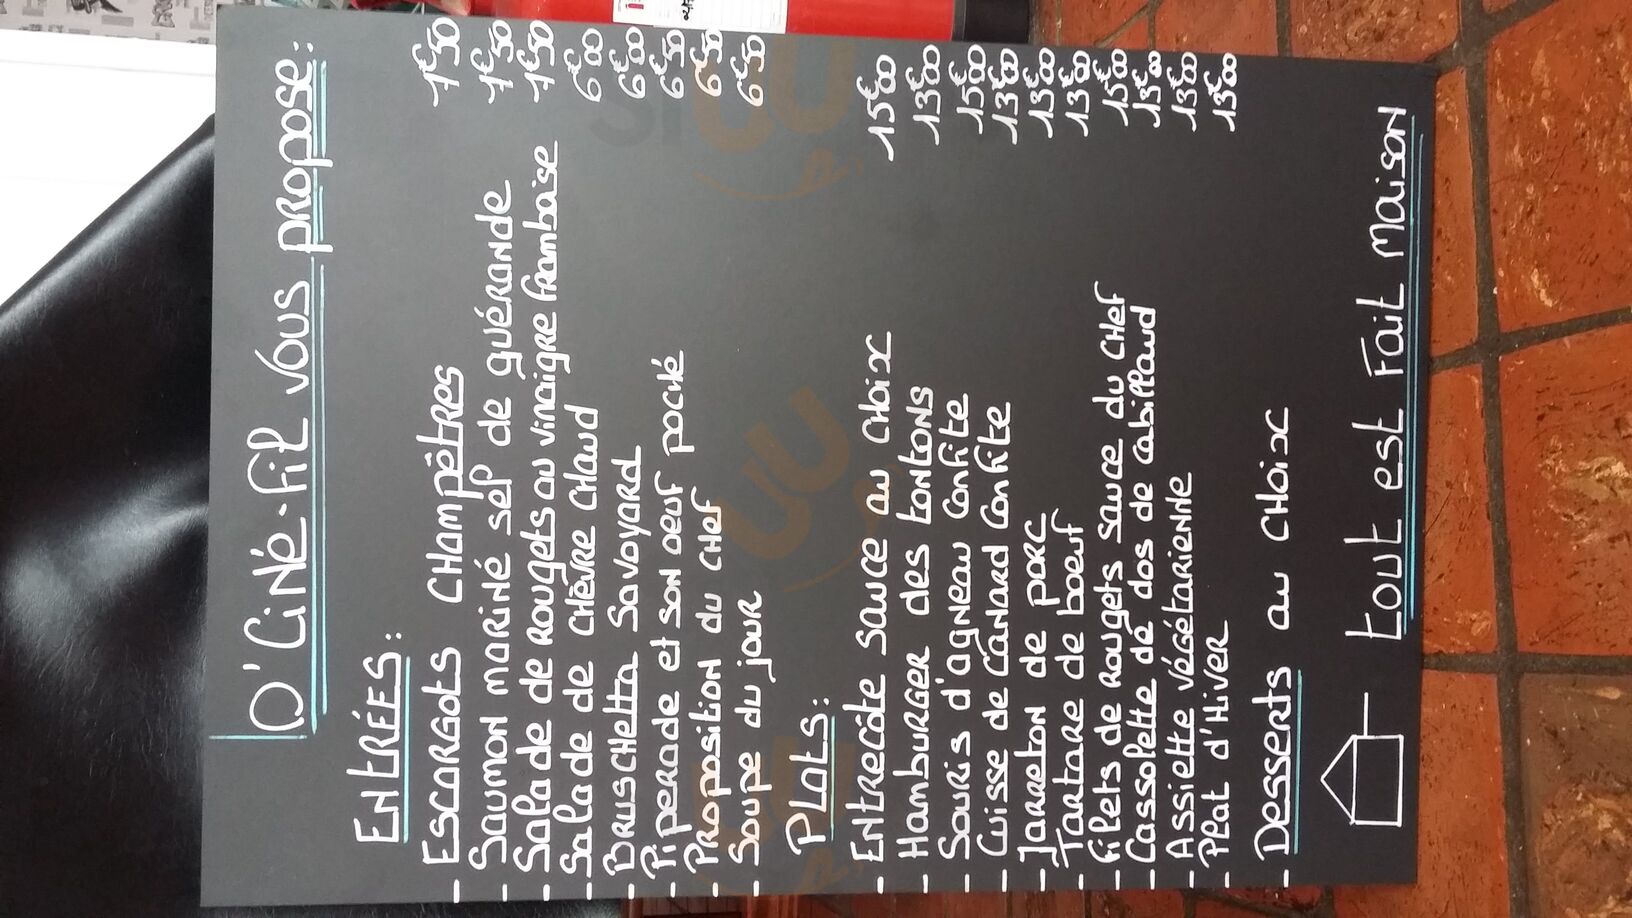 O'Ciné-fil vous propose:
Entrées:
- Escargots Champêtres 7€50
- Saumon mariné sel de guérande 7€50
- Salade de Rougets au vinaigre framboise 7€50
- Salade de chèvre chaud 6€00
- Bruschetta Savoyard 6€00
- Piperade et son oeuf poché 6€50
- Proposition du chef 6€50
- Soupe du jour 6€50
Plats:
- Entrecôte sauce au choix 15€00
- Hamburger des tontons 13€00
- Souris d'agneau confite 15€00
- Cuisse de Canard Confite 13€00
- Jarreton de porc 13€00
- Tartare de boeuf 13€00
- Filets de Rougets sauce du chef 15€00
- Cassolette de dos de cabillaud 13€00
- Assiette végétarienne 13€00
- Plat d'Hiver 13€00
- Desserts au choix
tout est Fait Maison